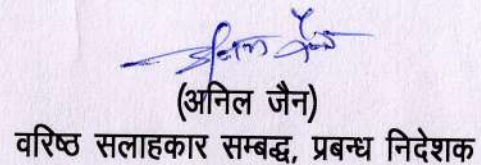 अनिल जैन
(अनिल जैन)
वरिष्ठ सलाहकार सम्बद्ध, प्रबन्ध निदेशक